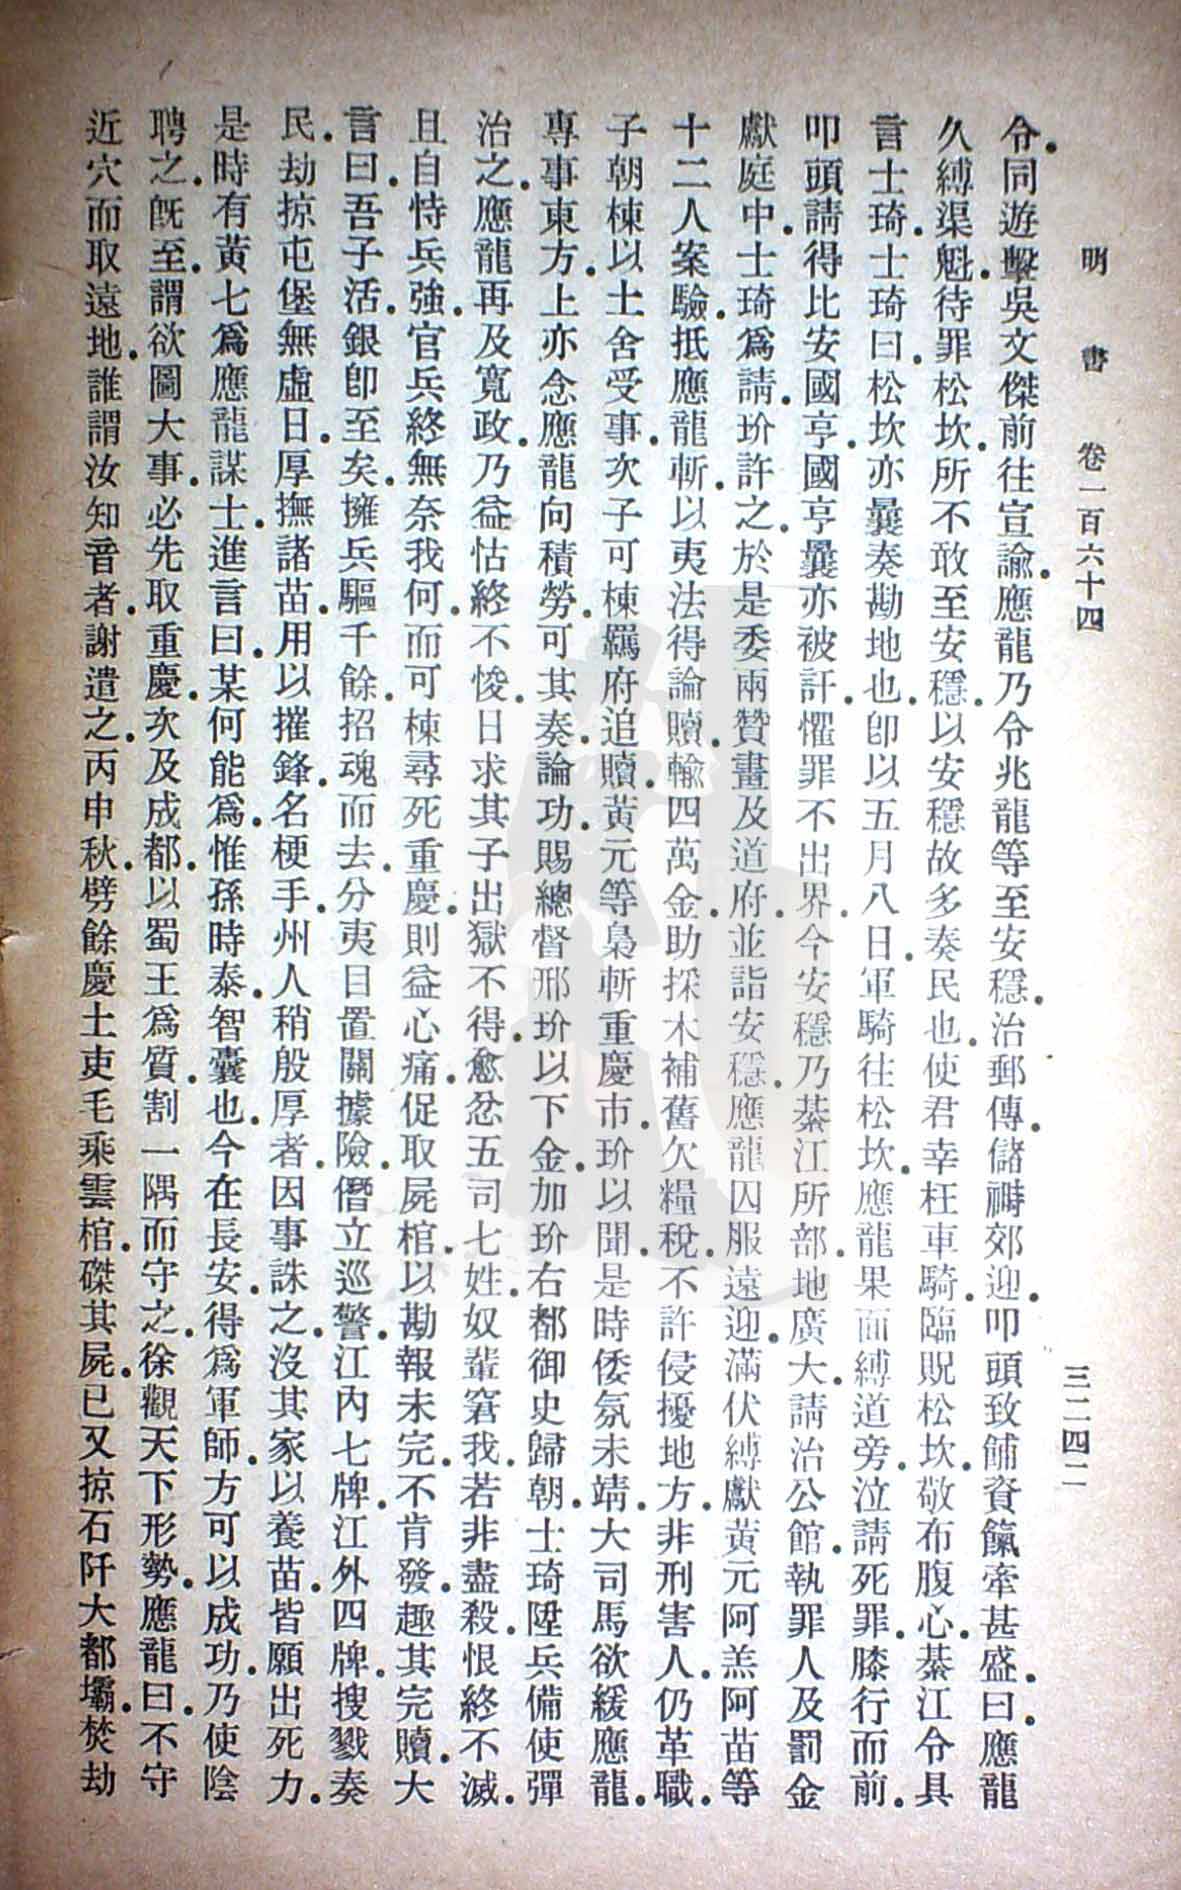 明書 卷一百六十四 三二四二
令同遊擊吳文傑前往宣諭應龍乃令兆龍等至安穩治郵傳儲糈郊迎叩頭致餔資餼牽甚盛曰應龍
久縛渠魁待罪松坎所不敢至安穩以安穩故多奏民也使君幸枉車騎臨貺松坎敬布腹心綦江令具
言士琦士琦曰松坎亦曩奏勘地也卽以五月八日單騎往松坎應龍果面縛道旁泣請死罪膝行而前
叩頭請得比安國亨國亨曩亦被訐懼罪不出界今安穩乃綦江所部地廣大請治公館執罪人及罰金
獻庭中士琦爲請玠許之於是委兩贊畫及道府並詣安穩應龍囚服遠迎滿伏縛獻黃元阿羔阿苗等
十二人案驗抵應龍斬以夷法得論贖輸四萬金助採木補舊欠糧稅不許侵擾地方非刑害人仍革職
子朝棟以土舍受事次子可棟羈府追贖黃元等梟斬重慶市玠以聞是時倭氛未靖大司馬欲緩應龍
專事東方上亦念應龍向積勞可其奏論功賜總督邢玠以下金加玠右都御史歸朝士琦陞兵備使彈
治之應龍再及寬政乃益怙終不悛日求其子出獄不得愈忿五司七姓奴輩窘我若非盡殺恨終不滅
且自恃兵強官兵終無奈我何而可棟尋死重慶則益心痛促取屍棺以勘報未完不肯發趣其完贖大
言曰吾子活銀卽至矣擁兵驅千餘招魂而去分夷目置關據險僭立巡警江內七牌江外四牌搜戮奏
民劫掠屯堡無虛日厚撫諸苗用以摧鋒名梗手州人稍殷厚者因事誅之沒其家以養苗皆願出死力
是時有黃七爲應龍謀士進言曰某何能爲惟孫時泰智囊也今在長安得爲軍師方可以成功乃使陰
聘之旣至謂欲圖大事必先取重慶次及成都以蜀王爲質割一隅而守之徐觀天下形勢應龍曰不守
近穴而取遠地誰謂汝知音者謝遣之丙申秋劈餘慶土吏毛乘雲棺磔其屍已又掠石阡大都壩焚劫